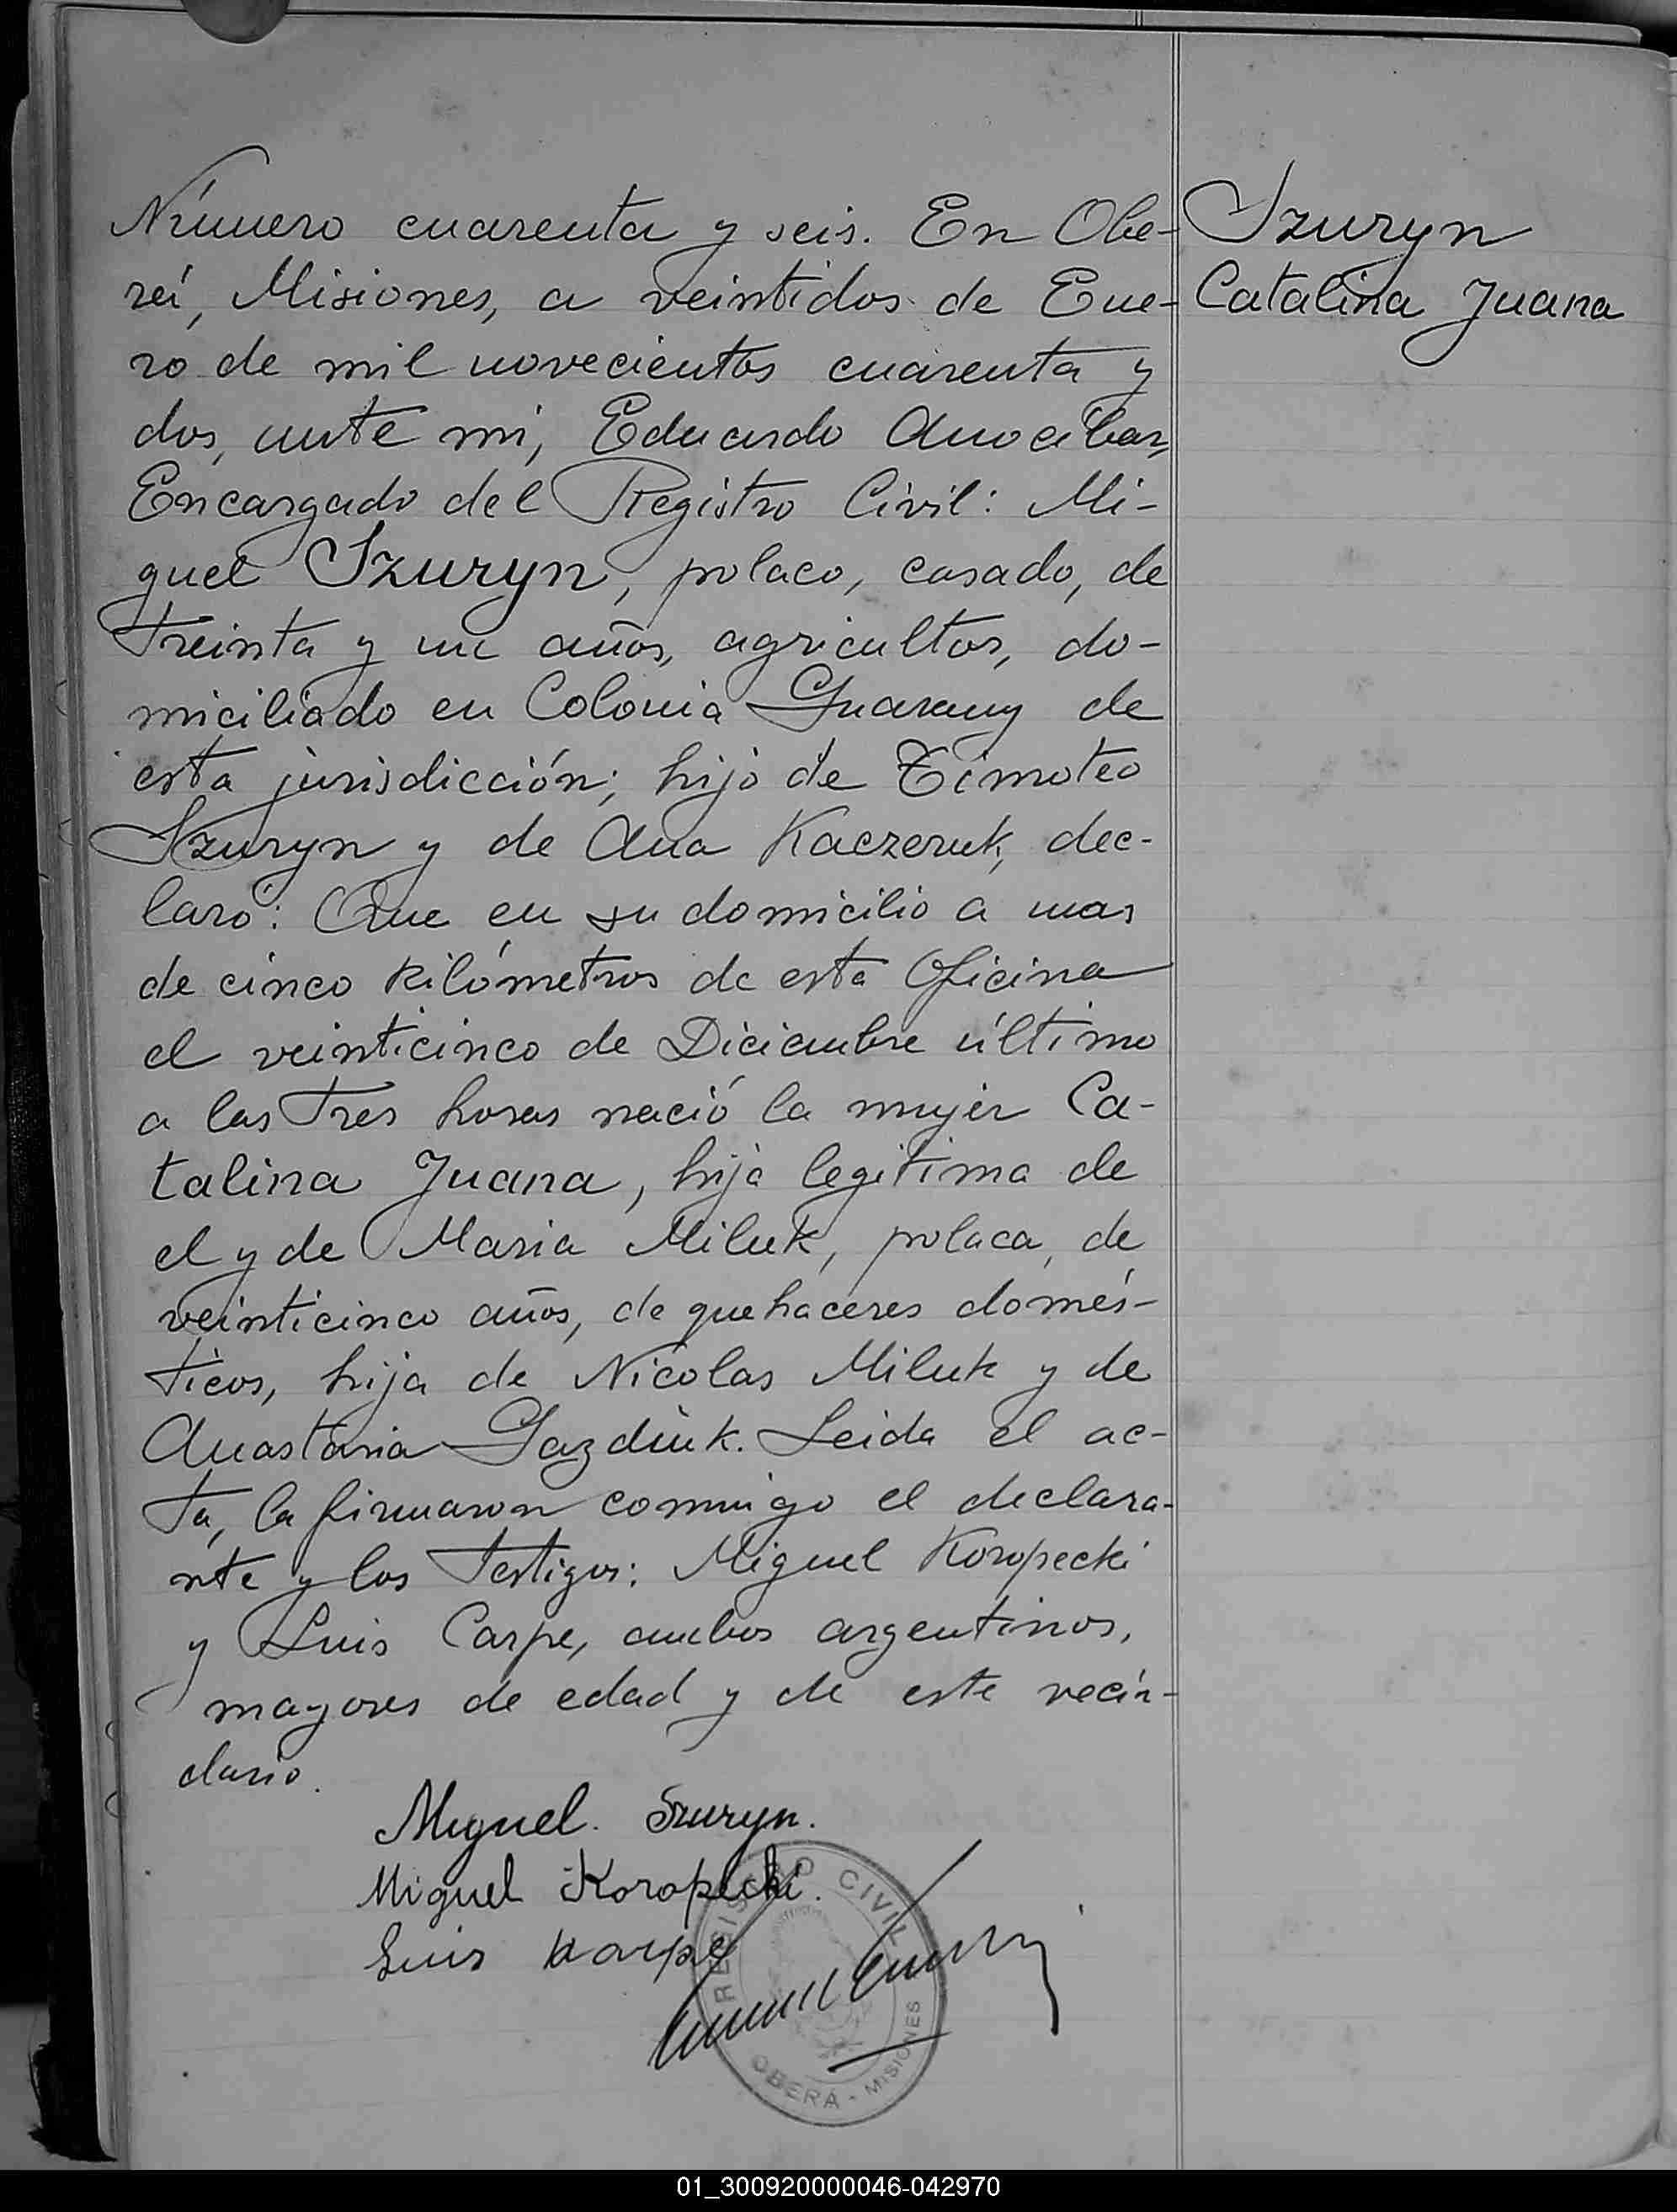 Número cuarenta y seis. En Obe-
rá, Misiones, a veintidos de Ene-
ro de mil novecientos cuarenta y
dos, ante mi, Eduardo Anocibar,
Encargado del Registro Civil: Mi-
guel Szuryn, polaco, casado, de
treinta y un años, agricultor, do-
miciliado en Colonia Guarany de
esta jurisdicción; hijo de Timoteo
Szuryn y de Ana Kaczeruk, dec-
laró: Que en su domicilio a mas
de cinco kilómetros de esta Oficina
el veinticinco de Diciembre último
a las tres horas nació la mujer Ca-
talina Juana, hija legitima de
el y de Maria Miluk, polaca, de
veinticinco años, de quehaceres domés-
ticos, hija de Nicolas Miluk y de
Anastasia Gazdiuk. Leida el ac-
ta, la firmaron conmigo el declara-
nte y los testigos: Miguel Koropecki
y Luis Carpe, ambos argentinos,
mayores de edad y de este vecin-
dario.
Szuryn
Catalina Juana
Miguel. Szuryn.
Miguel Koropecki.
Luis Karpe
REGISTRO CIVIL
OBERÁ - MISIONES
01_300920000046-042970